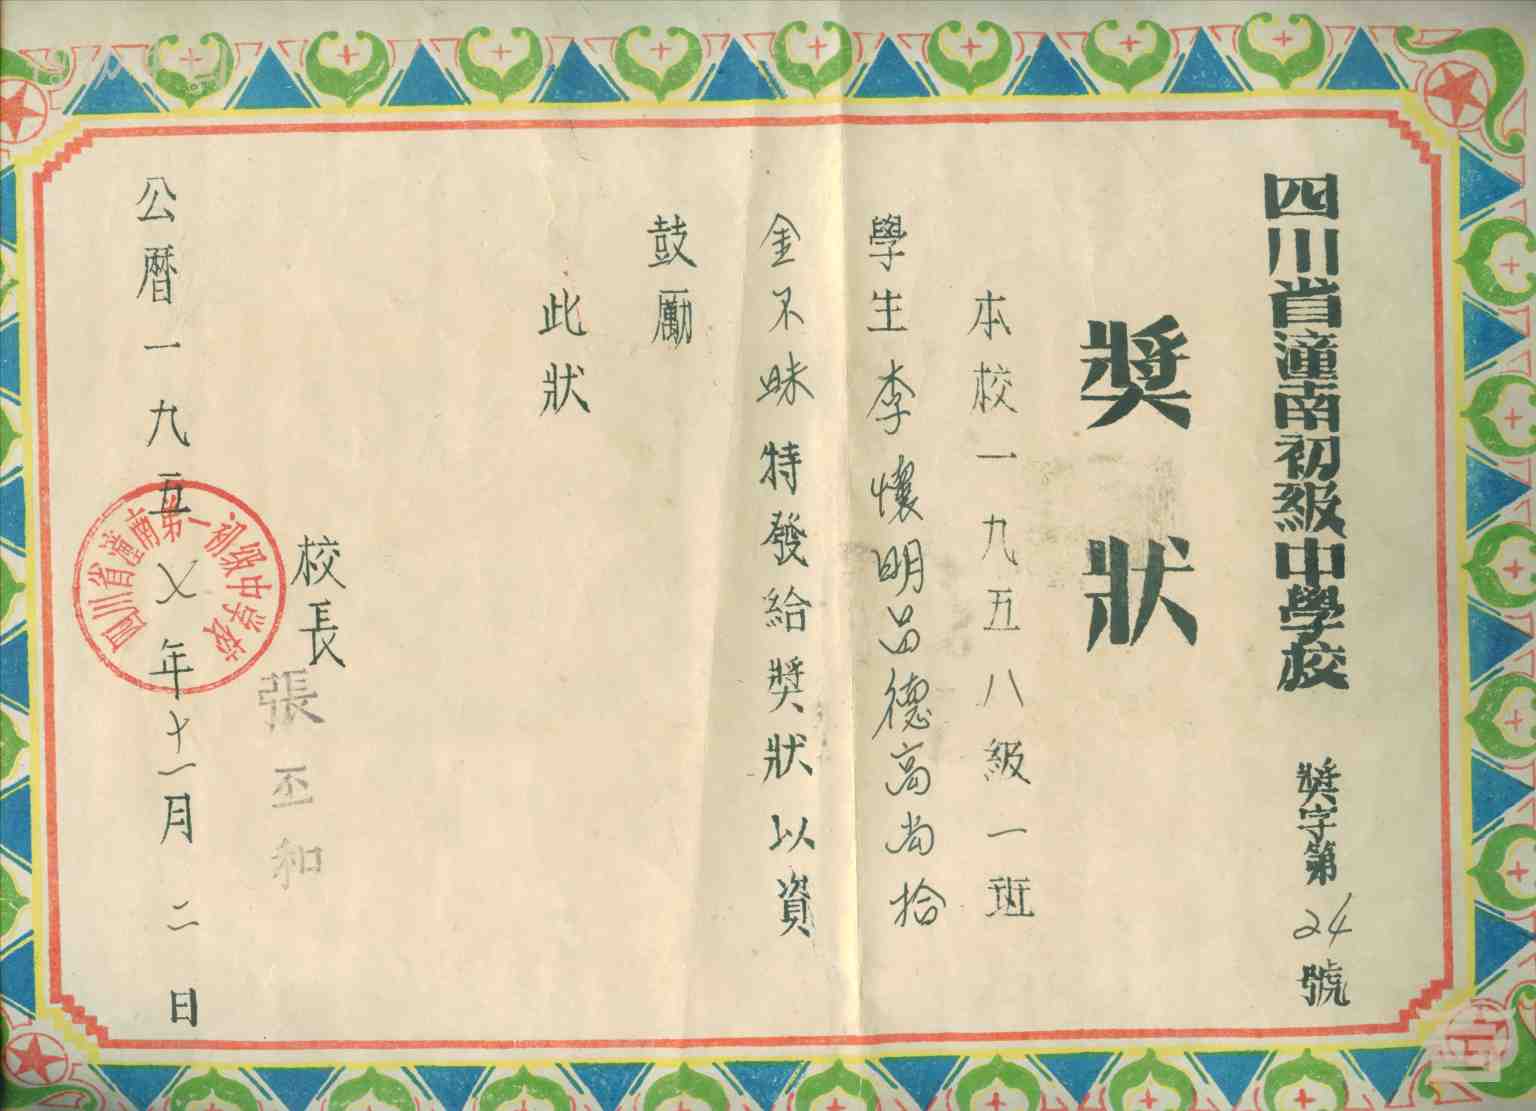 四川省潼南初級中學校
獎字第24號
獎狀
本校一九五八級一班
學生李懷明品德高尚拾
金不昧特發給獎狀以資
鼓勵
此狀
校長
張丕和
公曆一九五七年十一月二日
四川省潼南第一初級中学校